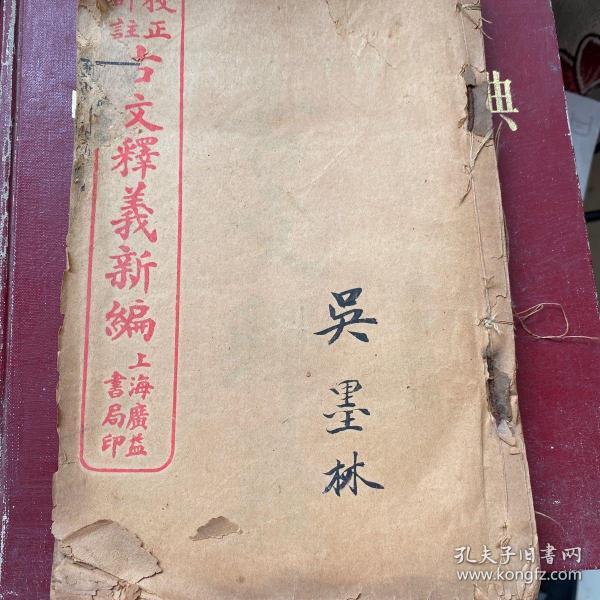 校正
註
古文釋義新編
上海廣益
書局印
吳墨林
典
孔夫子旧书网
www.kongfz.com